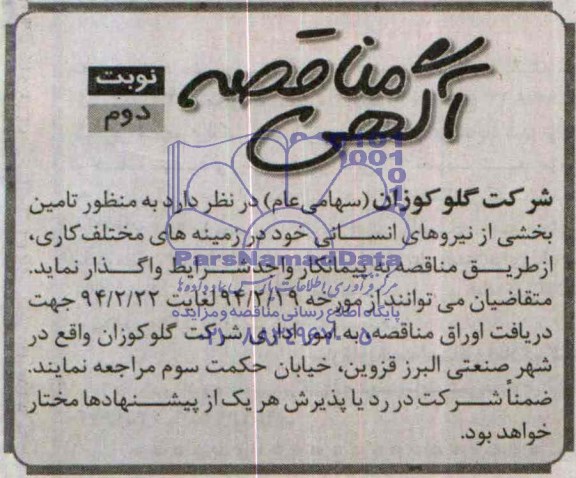 آگهی مناقصه
نوبت
دوم
شرکت گلوکوزان (سهامی‌عام) در نظر دارد به منظور تامین
بخشی از نیروهای انسانی خود در زمینه های مختلف‌کاری،
ازطریق مناقصه به پیمانکار واجد شرایط واگذار نماید.
متقاضیان می توانند از مورخه ۹۴/۲/۱۹ لغایت ۹۴/۲/۲۲ جهت
دریافت اوراق مناقصه، به امور اداری شرکت گلوکوزان واقع در
شهر صنعتی البرز قزوین، خیابان حکمت سوم مراجعه نمایند.
ضمناً شرکت در رد یا پذیرش هر یک از پیشنهادها مختار
خواهد بود.
ParsNamadData
پایگاه اطلاع رسانی مناقصه و مزایده